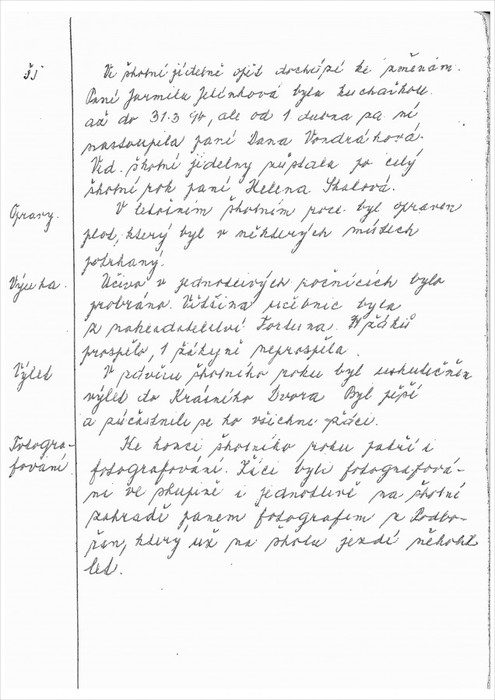 ŠJ
Ve školní jídelně opět dochází ke změnám.
Paní Jarmila Jelínková byla kuchařkou
až do 31.3.94, ale od 1 dubna za ní
nastoupila paní Dana Vondráková.
Ved. školní jídelny zůstala po celý
školní rok paní Helena Skalová.
Opravy.
V letošním školním roce byl opraven
plot, který byl v některých místech
potrhaný.
Výuka.
Učivo v jednotlivých ročnících bylo
probráno. Většina učebnic byla
z nakladatelství Fortuna. žáků
prospělo, 1 žákyně neprospěla.
Výlet
V závěru školního roku byl uskutečněn
výlet do Krásného Dvora Byl pěší
a zúčastnili se ho všichni žáci.
Fotogra-
fování
Ke konci školního roku patří i
fotografování. Žáci byli fotografová-
ni ve skupině i jednotlivě na školní
zahradě panem fotografem z Podbo-
řan, který už na školu jezdí několik
let.